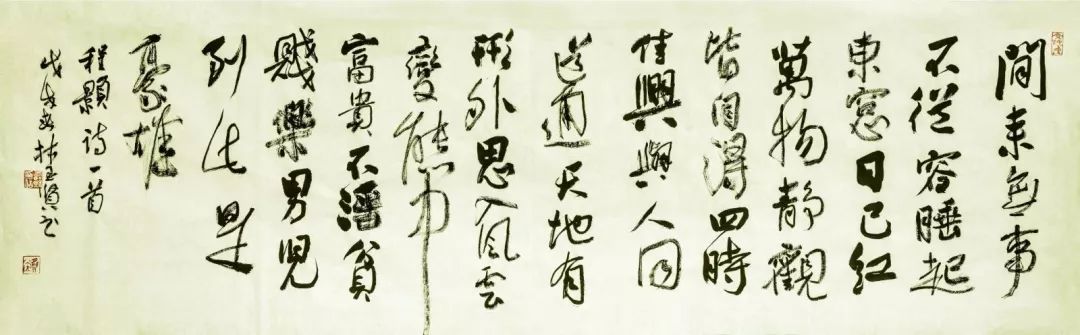 閒来無事
不從容睡起
東窓日已红
萬物静觀
皆自得四時
佳興與人同
道通天地有
形外思入風雲
變態中
富貴不淫貧
賤樂男児
到此是
豪雄
程顥诗一首
戊戌 林 书